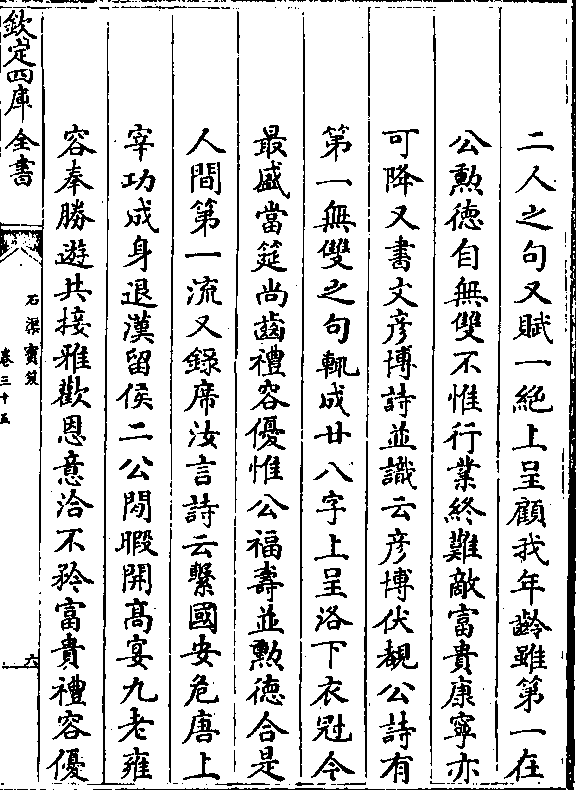 二人之句又賦一絶上呈顧我年齡雖第一在
公勲德自無雙不惟行業終難敵富貴康寧亦
可降又書文彦博詩並識云彦博伏覩公詩有
第一無雙之句輒成廿八字上呈洛下衣冠今
最盛當筵尚齒禮容優惟公福壽並勲德合是
人間第一流又錄席汝言詩云繫國安危唐上
宰功成身退漢留侯二公閒暇開髙宴九老雍
容奉勝遊共接雅歡恩意洽不矜富貴禮容優
欽定四庫全書
石渠寶笈
卷三十五
六